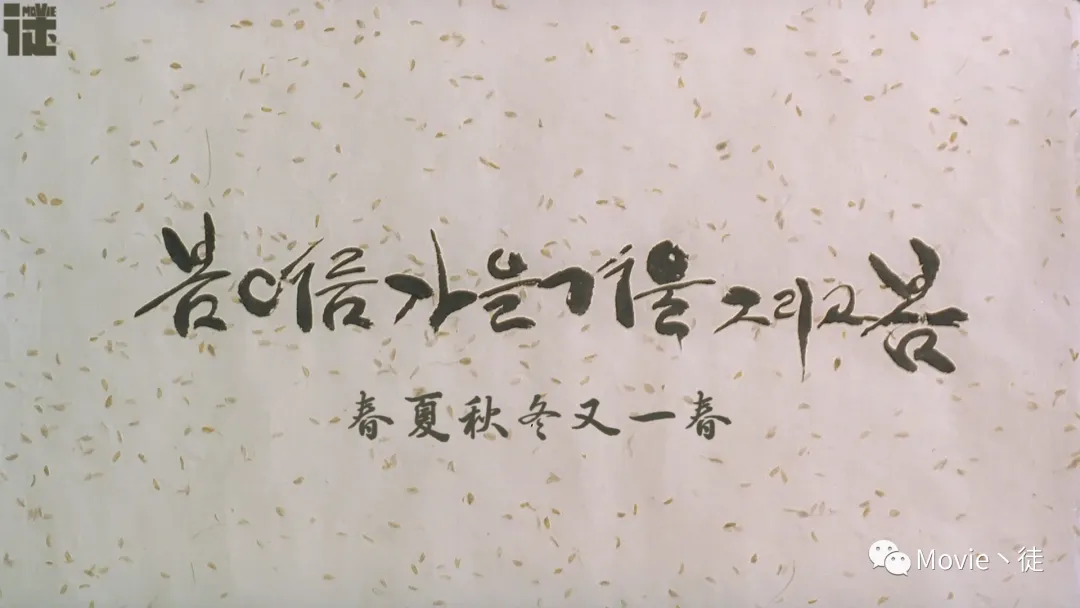 MOVIE
徒
봄 여름 가을 겨울 그리고 봄
春夏秋冬又一春
Movie丶徒